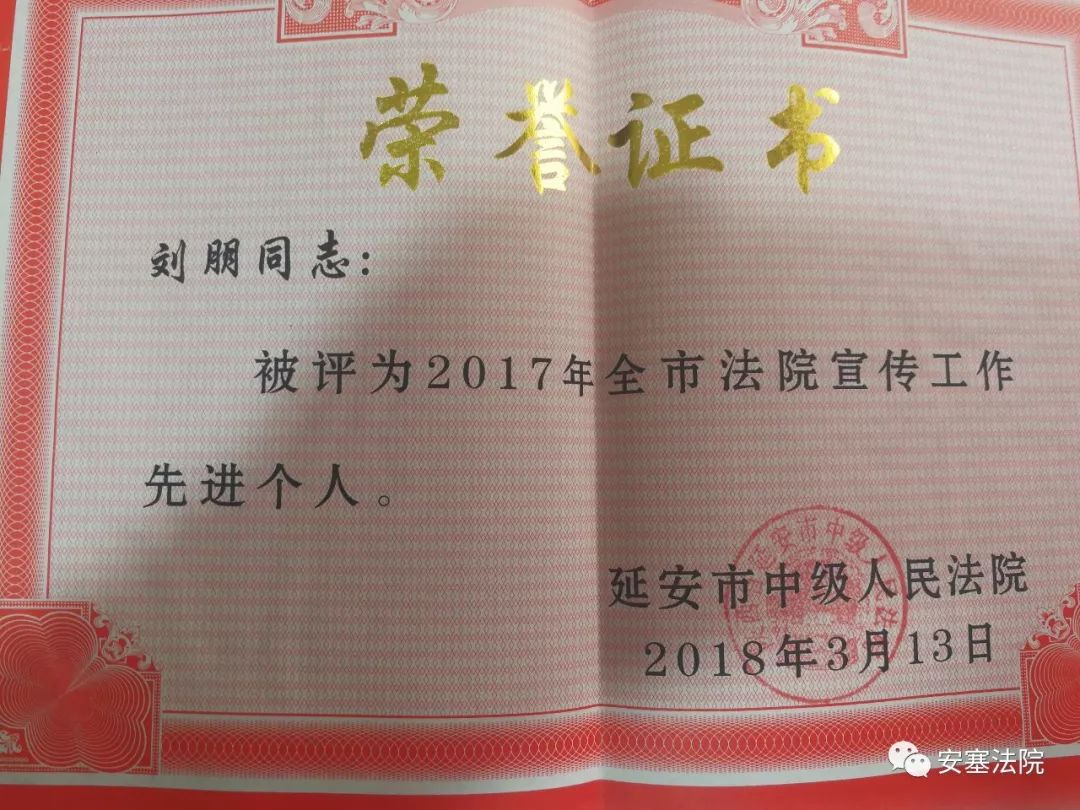 荣誉证书
刘朋同志：
被评为2017年全市法院宣传工作
先进个人。
延安市中级人民法院
2018年3月13日
安塞法院